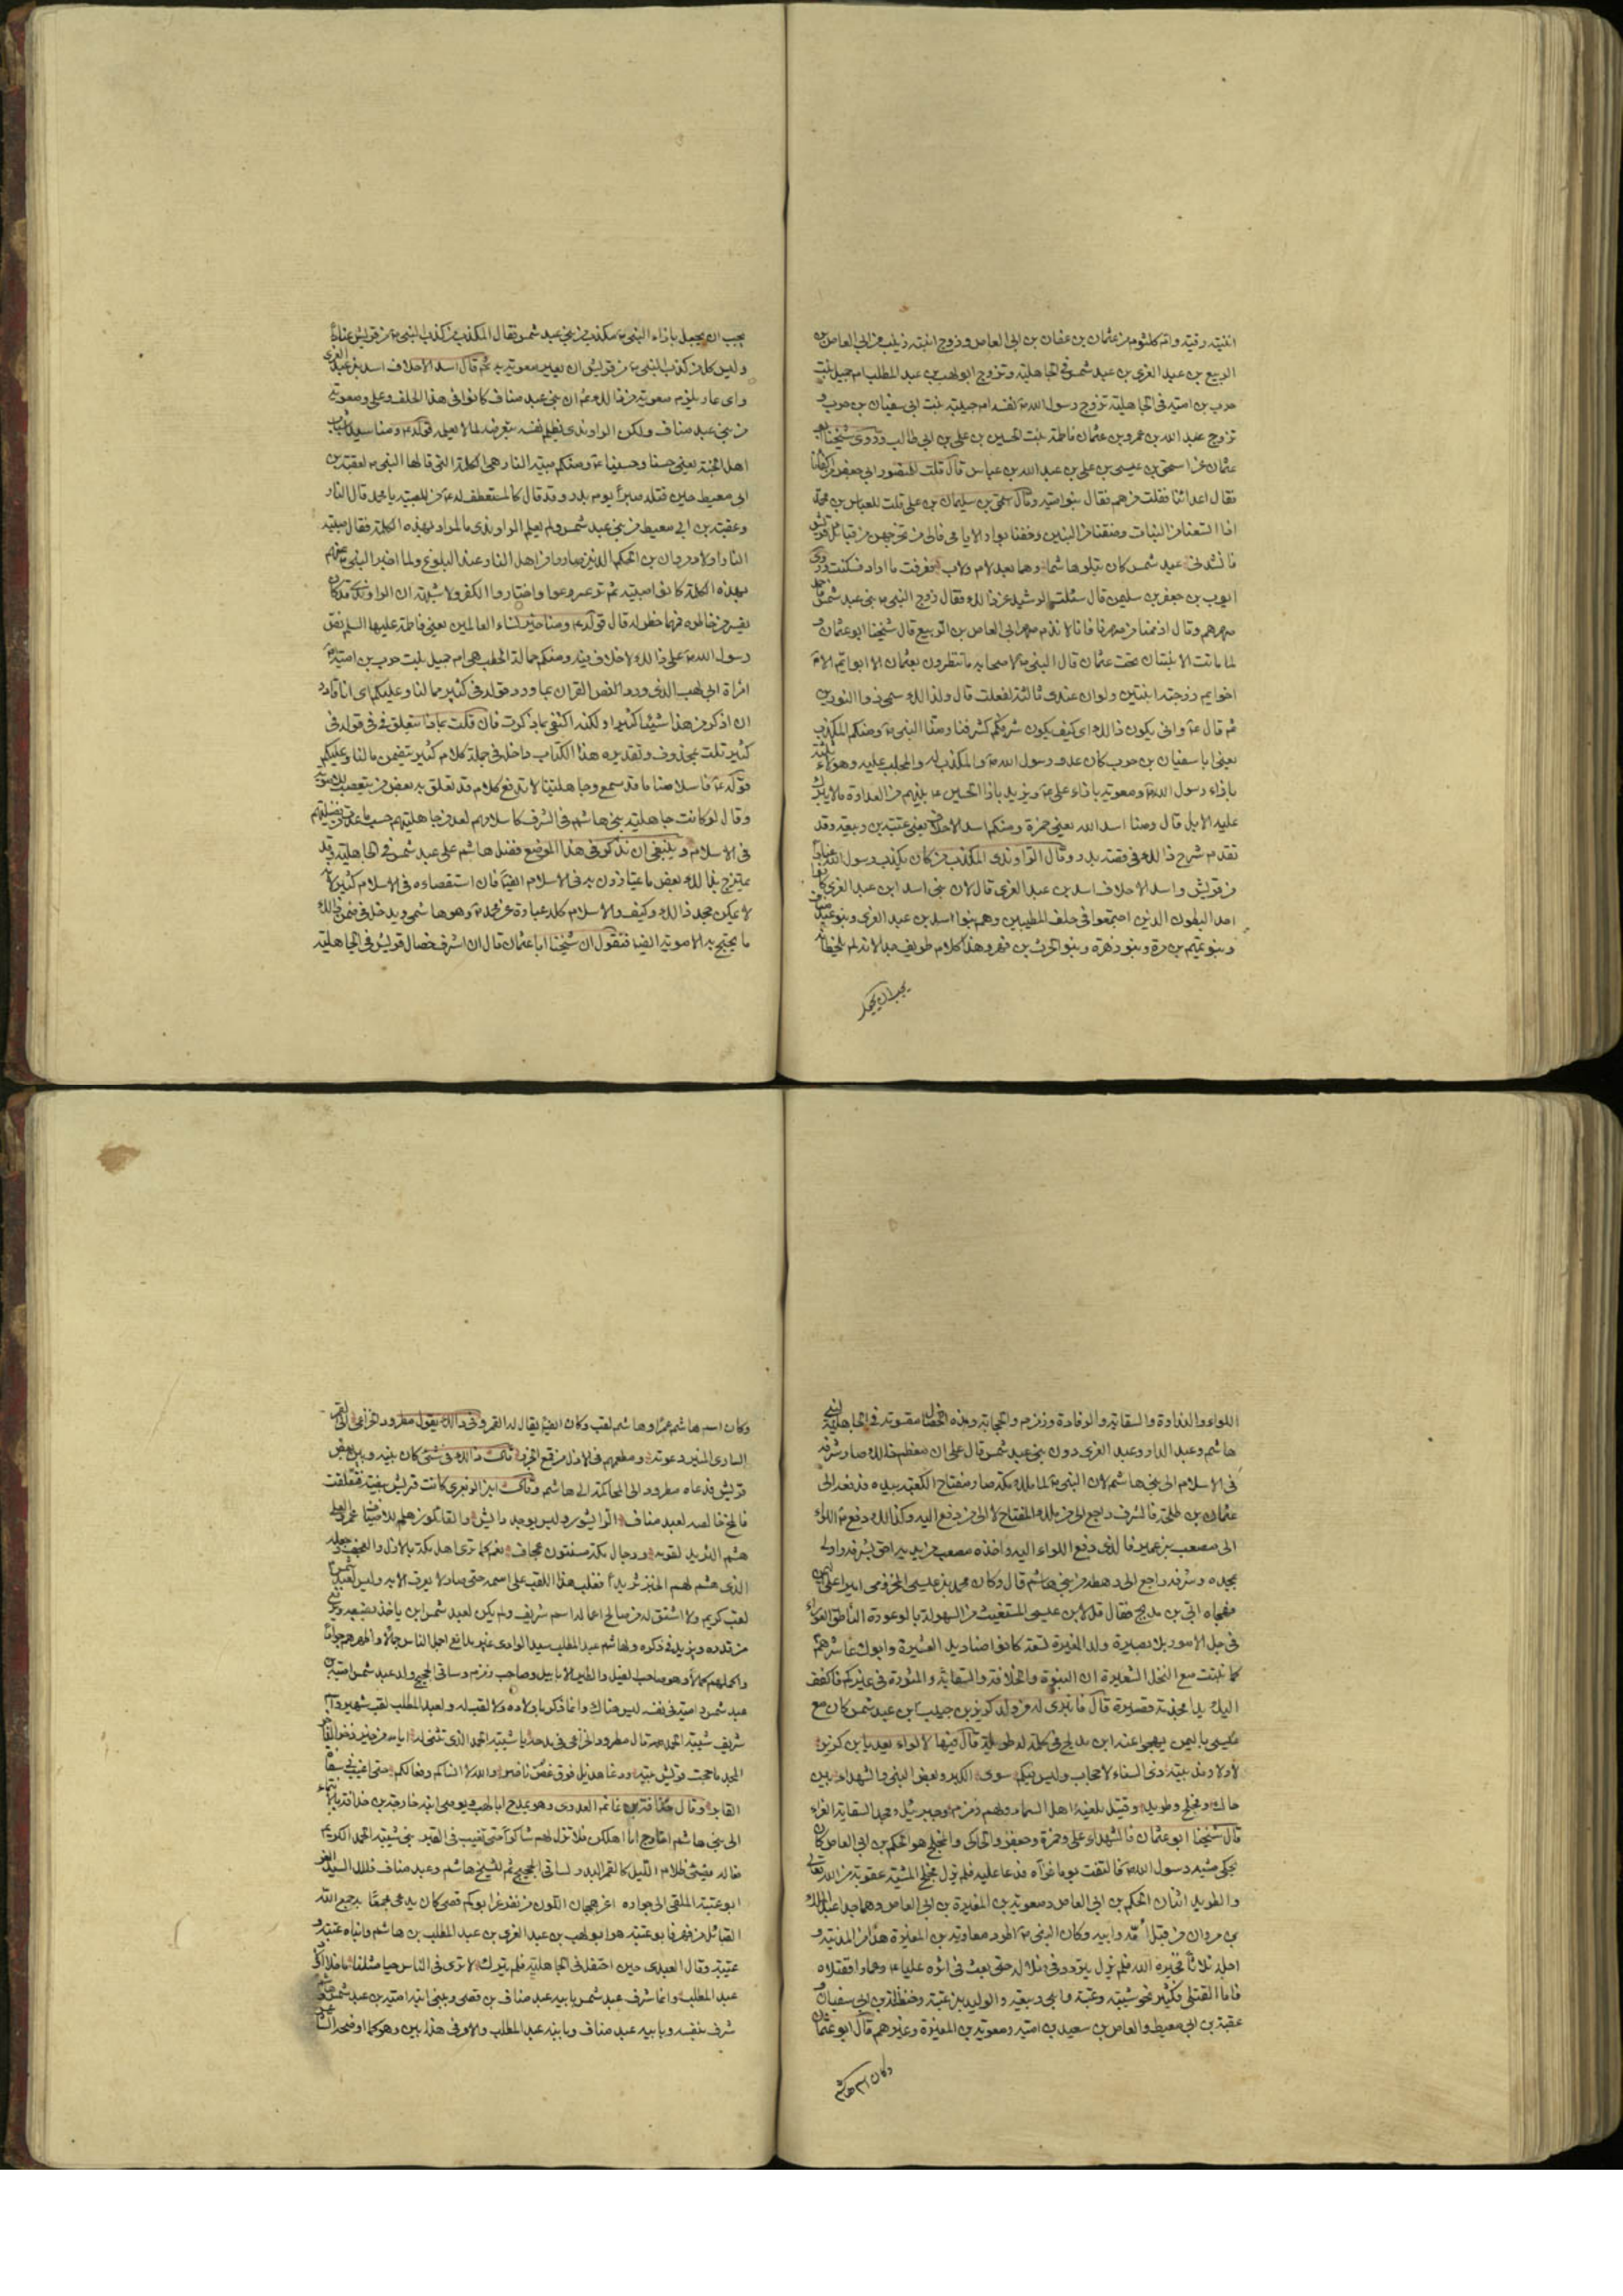 ابنتيه رقية وام كلثوم من عثمان بن عفان بن ابى العاص وزوج ابنته زينب من ابى العاص بن
الربيع بن عبد العزى بن عبد شمس فى الجاهلية وتزوج ابو لهب بن عبد المطلب ام جميل بنت
حرب بن امية فى الجاهلية وتزوج رسول الله ص لنفسه ام حبيبة بنت ابى سفيان بن حرب و
تزوج عبد الله بن عمرو بن عثمان فاطمة بنت الحسين بن على بن ابى طالب وروى شيخنا ابو
عثمان عن اسحق بن عيسى بن على بن عبد الله بن عباس قال قلت للمنصور ابى جعفر من اكفاؤنا
فقال اعدائنا فقلت من هم فقال بنو امية وقال اسحق بن سليمان بن على قلت للعباس بن محمد
اذا اتسعنا من البنات وضقنا من البنين وخفنا بوار الايامى فالى من نخرجهن من قبائل قريش
فانشدنى عبد شمس كان يتلو هاشما وهما بعد لام ولاب فعرفت ما اراد فسكت وروى
ايوب بن جعفر بن سليمن قال سئلت الرشيد عن ذالك فقال زوج النبى ص بنى عبد شمس فاحمد
صهرهم وقال اذ ذممنا من صهرنا فانا لا نذم صهر ابى العاص بن الربيع قال شيخنا ابو عثمان و
لما ماتت الابنتان تحت عثمان قال النبى ص لاصحابه ما تنتظرون بعثمان الا ابو ايم الا
اخو ايم زوجته ابنتين ولو ان عندى ثالثة لفعلت قال ولذالك سمى ذو النورين
ثم قال ع وانى يكون ذالك اى كيف يكون شرفكم كشرفنا ومنا النبى ص ومنكم المكذب
يعنى ابا سفيان بن حرب كان عدو رسول الله ص والمكذب له والمجلب عليه وهؤلاء ثلثة
بازاء رسول الله ص ومعوية بازاء على ع ويزيد بازا الحسين ع بينهم من العداوة ما لا يبرك
عليه الابل قال ومنا اسد الله يعنى حمزة ومنكم اسد الاحلاف يعنى عتبة بن ربيعة وقد
تقدم شرح ذالك فى قصة بدر وقال الراوندى المكذب من كان يكذب رسول الله عنادا
من قريش واسد الاحلاف اسد بن عبد العزى قال لان بنى اسد ابن عبد العزى كانوا
احد البطون الذين اجتمعوا فى حلف المطيبين وهم بنو اسد بن عبد العزى وبنو عبد مناف
وبنو تيم بن مرة وبنو زهرة وبنو الحرث بن فهر وهذا كلام طريف جدا لانه لم يلحظ انه
يجب ان يجعل
يجب ان يجعل بازاء النبى ص مكذب من بنى عبد شمس فقال المكذب من كذب النبى ص من قريش عنادا
وليس كل من كذب النبى ص من قريش ان يعير معوية به ثم قال اسد الاحلاف اسد بن عبد العزى
واى عار يلزم معوية من ذالك ثم ان بنى عبد مناف كانوا فى هذا الحلف وعلى ومعوية
من بنى عبد مناف ولكن الراوندى يظلم نفسه بتعرضه لما لا يعلم قوله ع ومنا سيدا شباب
اهل الجنة يعنى حسنا وحسينا ع ومنكم صبية النار هى الكلمة التى قالها النبى ص لعقبة بن
ابى معيط حين قتله صبرا يوم بدر وقد قال كالمستعطف له ص من للصبية يا محمد قال النار
وعقبة بن ابى معيط من بنى عبد شمس ولم يعلم الراوندى ما المراد بهذه الكلمة فقال صبية
النار اولاد مروان بن الحكم الذين صاروا من اهل النار عند البلوغ ولما اخبر النبى ص عنهم
بهذه الكلمة كانوا صبية ثم ترعرعوا واختاروا الكفر ولا شبهة ان الراوندى قد كان
يفسر من خاطره فما خطر له قال قوله ع ومنا خير نساء العالمين يعنى فاطمة عليها السلم نص
رسول الله ص على ذالك لا خلاف فيه ومنكم حمالة الحطب هى ام جميل بنت حرب بن امية
امراة ابى لهب الذى ورد النص القران بما ورد قوله فى كثير مما لنا وعليكم اى انا قادر
ان اذكر من هذا شيئا كثيرا ولكنه اكتفى بما ذكرت فان قلت بماذا يتعلق فى فى قوله فى
كثير قلت بمحذوف وتقديره هذا الكتاب داخل فى جملة كلام كثير يتضمن ما لنا وعليكم
قوله ع فاسلامنا ما قد سمع وجاهليتنا لا تدفع كلام قد تعلق به بعض من يتعصب للاموية
وقال لو كانت جاهلية بنى هاشم فى الشرف كاسلامهم لعد من جاهليتهم حسب ما عد من فضيلتهم
فى الاسلام وينبغى ان نذكر فى هذا الموضع فضل هاشم على عبد شمس فى الجاهلية وقد
يمتزج بذالك بعض ما يمتازون به فى الاسلام ايضا فان استقصاءه فى الاسلام كثير
لا يمكن جحد ذالك وكيف والاسلام كله عبارة عن محمد ص وهو هاشمى ويدخل فى ضمن ذالك
ما يحتج به الاموية ايضا فنقول ان شيخنا ابا عثمان قال ان اشرف خصال قريش فى الجاهلية
اللواء والندوة والسقاية والرفادة وزمزم والحجابة وهذه الخصال مقسومة فى الجاهلية لبنى
هاشم وعبد الدار وعبد العزى دون بنى عبد شمس قال على ان معظم ذالك صار شرفه
فى الاسلام الى بنى هاشم لان النبى ص لما ملك مكة صار مفتاح الكعبة بيده فدفعه الى
عثمان بن طلحة فالشرف راجع الى من ملك المفتاح لا الى من دفع اليه وكذالك دفع ص اللواء
الى مصعب بن عمير فالذى دفع اللواء اليه واخذه مصعب من يديه احق بشرفه واولى
بمجده وشرفه راجع الى رهطه من بنى هاشم قال وكان محمد بن عيسى المخزومى اميرا على اليمن
فهجاه ابى بن مدلج فقال قل لابن عيسى المستغيث من السهولة بالوعورة الناطق العوراء
فى جل الامور بلا بصيرة ولد المغيرة تسعة كانوا صناديد العشيرة وابوك عاشرهم
كما نبتت مع النخل الشعيرة ان النبوة والخلافة والسقاية والمشورة فى غيركم فاكفف
اليك يدا مجذمة قصيرة قال فانبرى له من ولد كريز بن حبيب ابن عبد شمس كان مع
عيسى باليمن يهجو عنه ابن مدلج فى كلمة له طويلة قال فيها لا لواء يعد يا ابن كريز
لا ولا رفد بيته ذى السناء لا حجاب وليس فيكم سوى الكبر وبغض النبى والشهداء بين
حاك ومخلج وطريد وقتيل يلعنه اهل السماء ولهم زمزم وجبريل ومجد السقاية الغراء
قال شيخنا ابو عثمان فالشهداء على وحمزة وجعفر والحاكى والمخلج هو الحكم بن ابى العاص كان
يحكى مشية رسول الله ص فالتفت يوما فرآه فدعا عليه فلم يزل مخلج المشية عقوبة من الله تعالى
والطريد اثنان الحكم بن ابى العاص ومعوية بن المغيرة بن ابى العاص وهما جدا عبد الملك
بن مروان من قبل امه وابيه وكان النبى ص طرد معاوية بن المغيرة هذا من المدينة و
اجله ثلاثا فحيره الله فلم يزل يتردد فى ضلاله حتى بعث فى اثره عليا ع وعمارا فقتلاه
فاما القتلى فكثير نحو شيبة وعتبة ابنى ربيعة والوليد بن عتبة وحنظلة بن ابى سفيان
عقبة بن ابى معيط والعاص بن سعيد بن امية ومعوية بن المغيرة وغيرهم قال ابو عثمان
وكان اسم هاشم
وكان اسم هاشم عمرا وهاشم لقب وكان ايضا يقال له القمر وفى ذالك يقول مطرود الخزاعى الى القمر
السارى المنير دعوته ومطعمهم فى الازل من قمع الجزر قال ذالك فى شئ كان بينه وبين بعض
قريش فدعاه مطرود الى المحاكمة الى هاشم وقال ابن الزبعرى كانت قريش بيضة فتفلقت
فالمخ خالصه لعبد مناف الرايشون وليس يوجد رايش والقائلون هلم للاضياف عمرو العلى
هشم الثريد لقومه ورجال مكة مسنتون عجاف فعم كما ترى اهل مكة بالازل والعجف وجعله
الذى هشم لهم الخبز ثريدا فغلب هذا اللقب على اسمه حتى صار لا يعرف الا به وليس لعبد شمس
لقب كريم ولا اشتق له من صالح اعماله اسم شريف ولم يكن لعبد شمس ابن ياخذ بضبعه ويرفع
من قدره ويزيد فى ذكره ولهاشم عبد المطلب سيد الوادى غير مدافع اجمل الناس جمالا واظهرهم جودا
واكملهم كمالا وهو صاحب الفيل والطير الابابيل وصاحب زمزم وساقى الحجيج وولد عبد شمس امية بن
عبد شمس وامية فى نفسه ليس هناك وانما ذكر باولاده ولا لقب له ولعبد المطلب لقب شهير واسم
شريف شيبة الحمد قال مطرود الخزاعى فى مدحه يا شيبة الحمد الذى تثنى له ايامه من خير ذخر الذاخر
المجد ما حجت قريش بيته ودعا هذيل فوق غصن ناضر والله لا انساكم وفعالكم حتى اغيب فى سفاه
القابر وقال حذافة بن غانم العدوى وهو يمدح ابا لهب ويوصى ابنه خارجة بن حذافة بالانتماء
الى بنى هاشم اخارج اما اهلكن فلا تزل لهم شاكرا حتى تغيب فى القبر بنى شيبة الحمد الكريم
فعاله يضئ ظلام الليل كالقمر البدر لساقى الحجيج ثم للشيخ هاشم وعبد مناف ذلك السيد الغمر
ابو عتبة الملقى الى جواره اغر هجان اللون من نفر غر ابوكم قصى كان يدعى مجمعا به جمع الله
القبائل من فهر فابو عتبة هو ابو لهب بن عبد العزى بن عبد المطلب بن هاشم وابناه عتبة و
عتيبة وقال العبدى حين احتفل فى الجاهلية فلم يترك لا ترى فى الناس حيا مثلنا ما خلا اولاد
عبد المطلب وانما شرف عبد شمس بابيه عبد مناف بن قصى وبنى ابنه امية بن عبد شمس وهاشم
شرف بنفسه وبابيه عبد مناف وبابنه عبد المطلب والامر فى هذا بين وهو كما اوضحه الشاعر